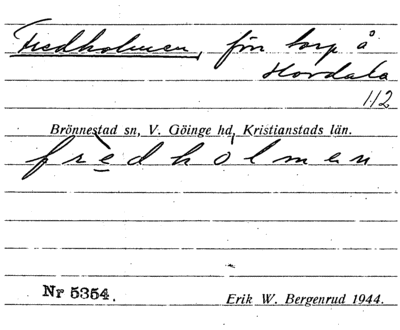 Fredholmen, förr torp å
Hovdala
1/2
Brönnestad sn, V. Göinge hd, Kristianstads län.
frèdhólmen
Nr 5354.
Erik W. Bergenrud 1944.